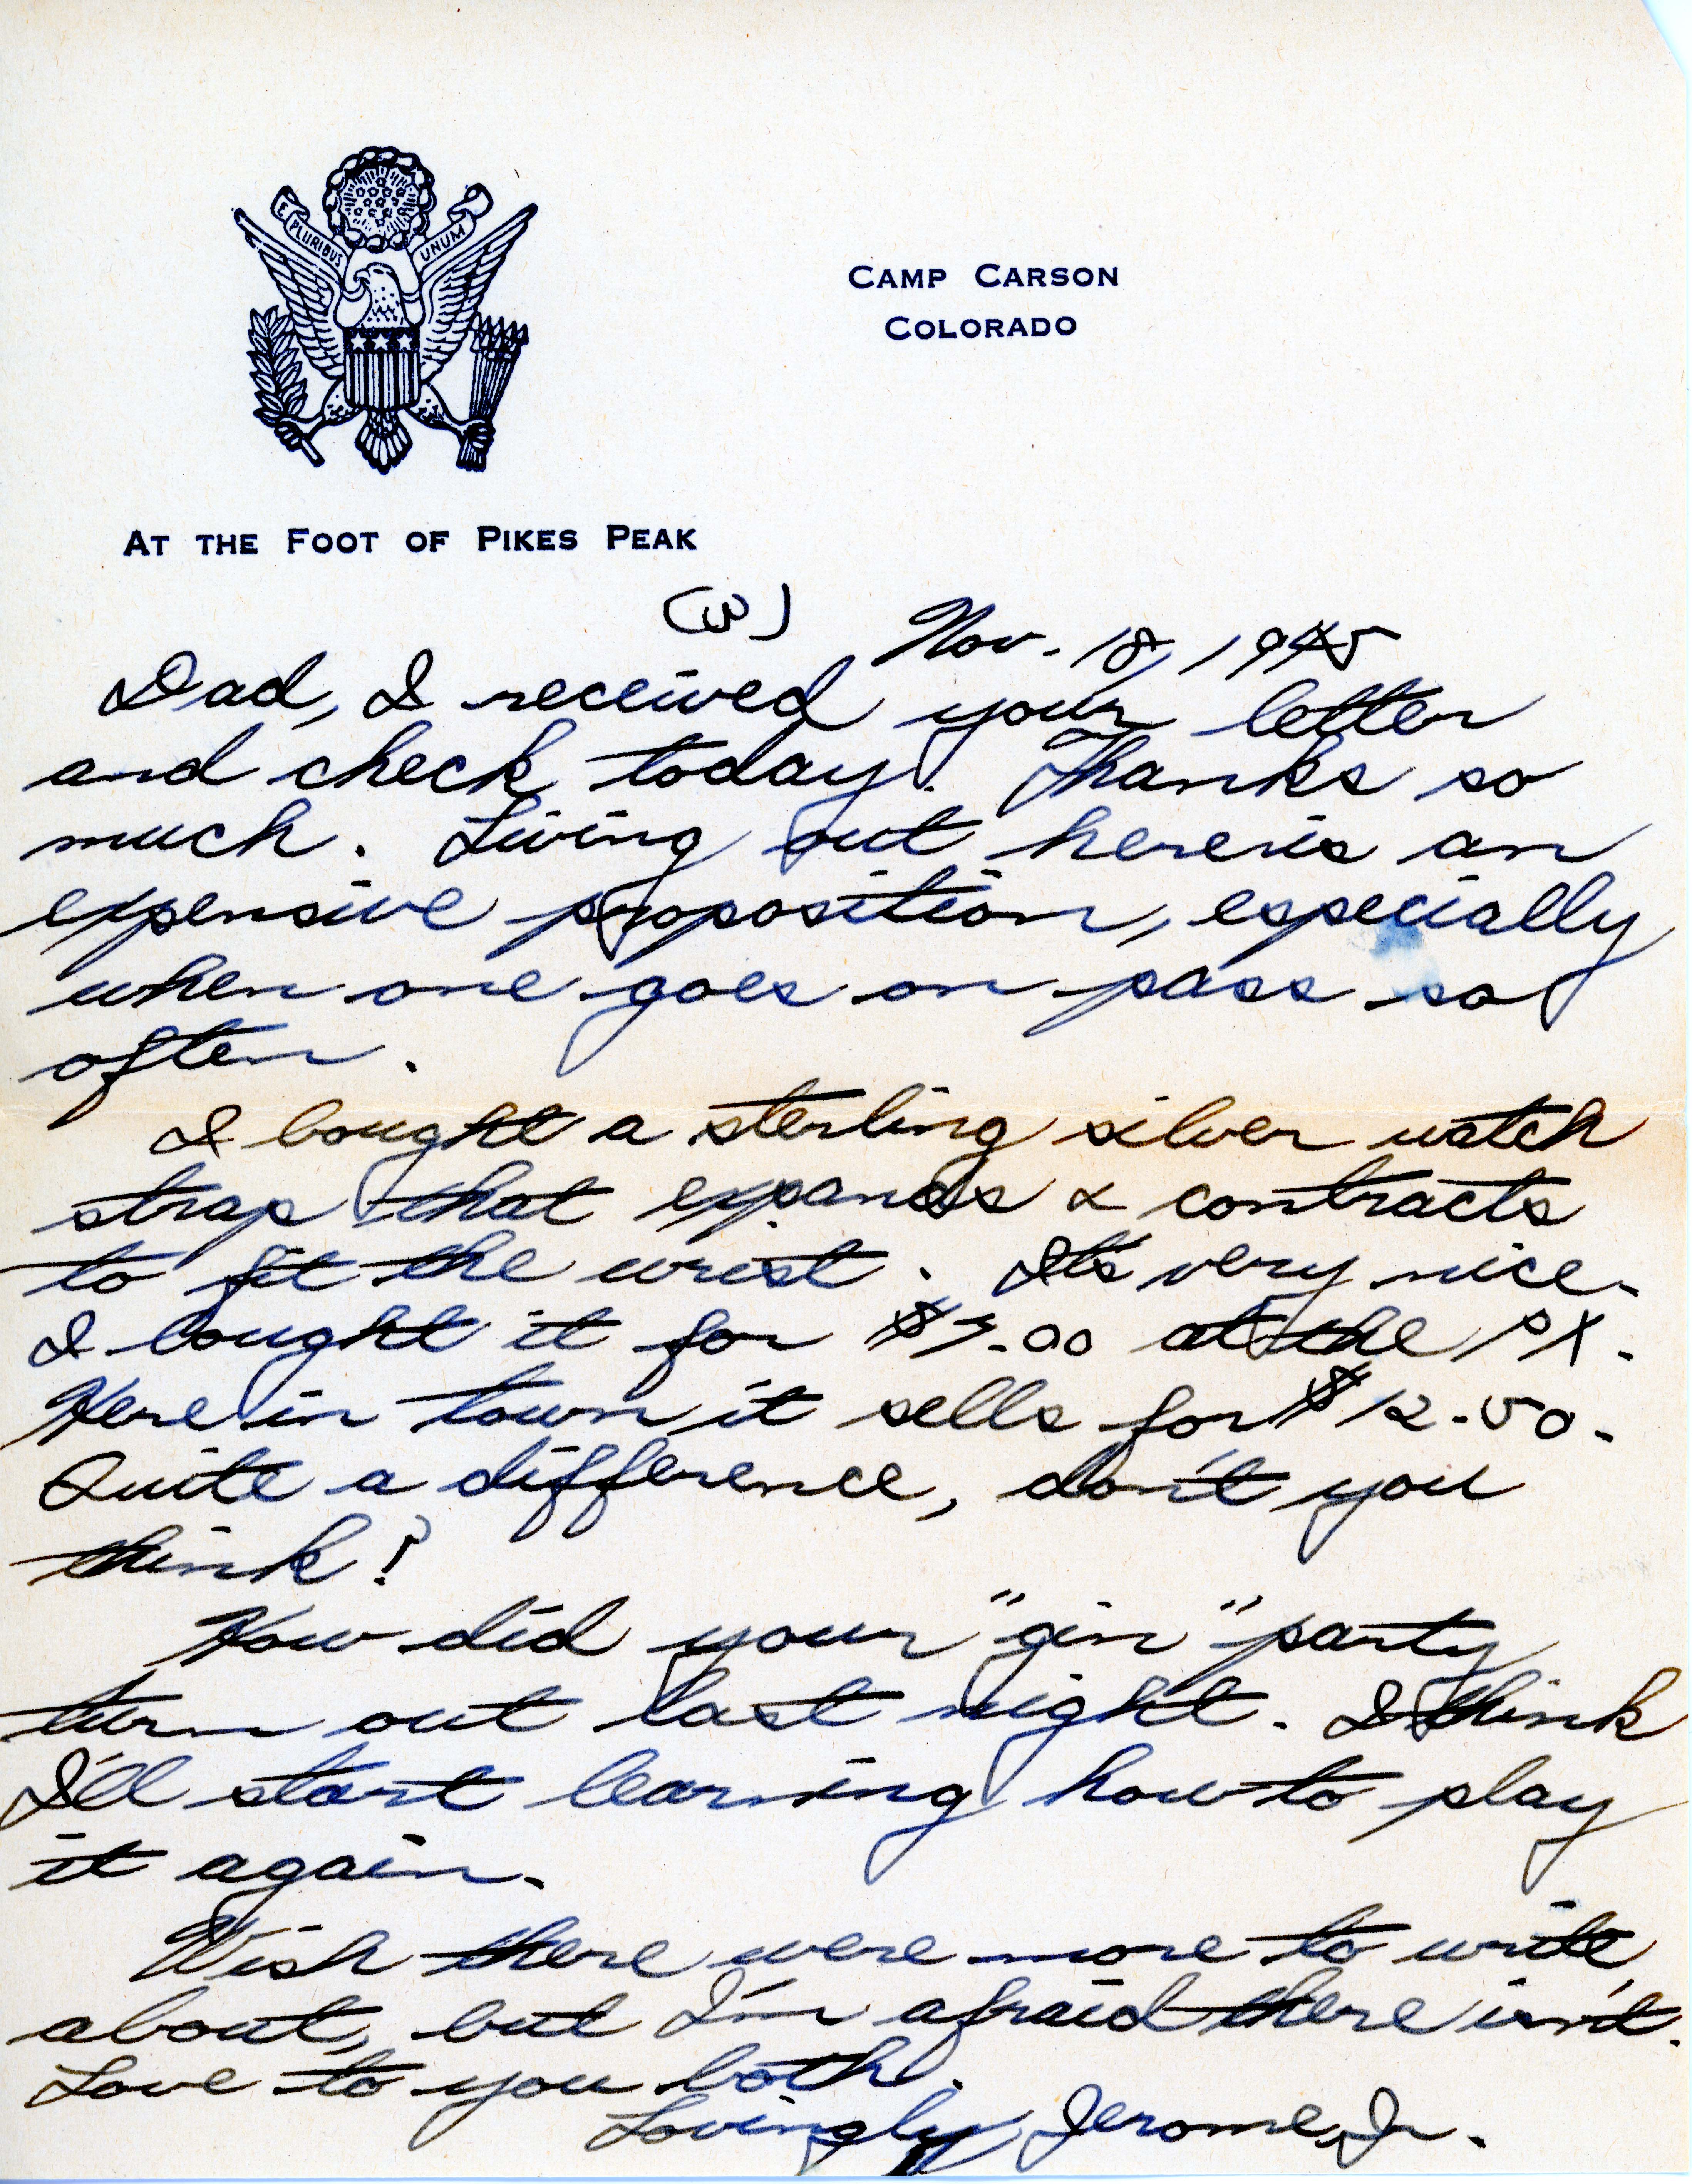 E PLURIBUS UNUM
CAMP CARSON
COLORADO
AT THE FOOT OF PIKES PEAK
(3)
Nov. 18, 1945
Dad, I received your letter
and check today. Thanks so
much. Living out here is an
expensive proposition, especially
when one goes on pass so
often.
I bought a sterling silver watch
strap that expands & contracts
to fit the wrist. It's very nice.
I bought it for $7.00 at the PX.
Here in town it sells for $12.50.
Quite a difference, don't you
think?
How did your "gin" party
turn out last night. I think
I'll start learning how to play
it again.
Wish there were more to write
about, but I'm afraid there isn't.
Love to you both.
Lovingly, Jerome, Jr.